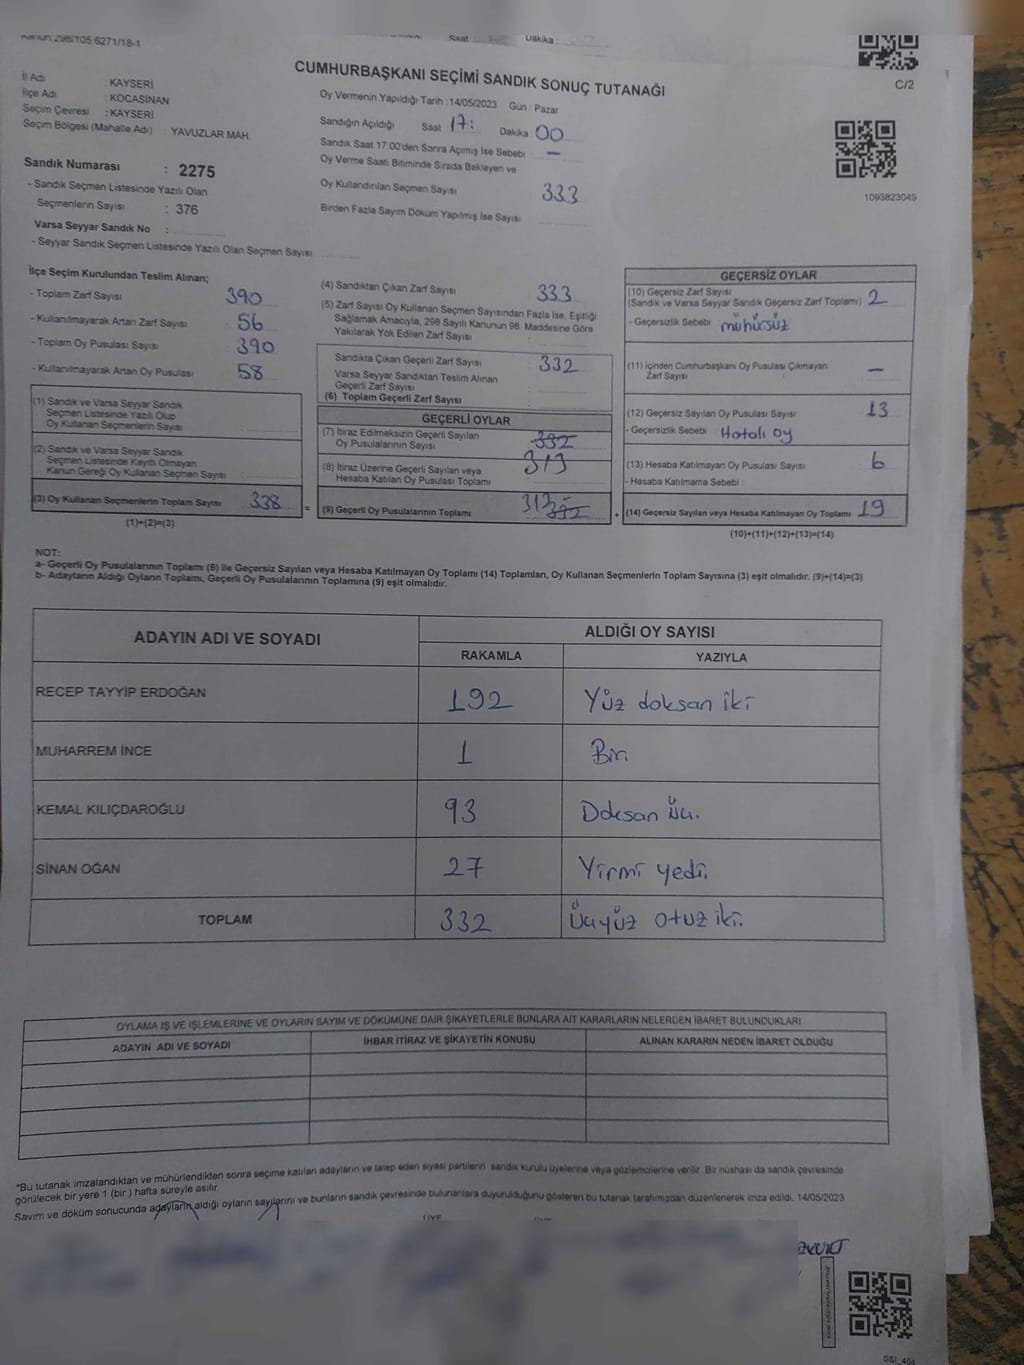 Kanun: 298/105:6271/18-1
Saat
Dakika :
C/2
CUMHURBAŞKANI SEÇİMİ SANDIK SONUÇ TUTANAĞI
İl Adı : KAYSERİ
İlçe Adı : KOCASİNAN
Seçim Çevresi : KAYSERİ
Seçim Bölgesi (Mahalle Adı) : YAVUZLAR MAH.
Oy Vermenin Yapıldığı Tarih : 14/05/2023 Gün : Pazar
Sandığın Açıldığı Saat 17: Dakika : 00
Sandık Saat 17:00'den Sonra Açımış İse Sebebi : —
Oy Verme Saati Bitiminde Sırada Bekleyen ve
Oy Kullandırılan Seçmen Sayısı : 333
Birden Fazla Sayım Döküm Yapılmış İse Sayısı :
1093823049
Sandık Numarası : 2275
- Sandık Seçmen Listesinde Yazılı Olan
Seçmenlerin Sayısı : 376
Varsa Seyyar Sandık No :
- Seyyar Sandık Seçmen Listesinde Yazılı Olan Seçmen Sayısı :
İlçe Seçim Kurulundan Teslim Alınan;
- Toplam Zarf Sayısı : 390
- Kullanılmayarak Artan Zarf Sayısı : 56
- Toplam Oy Pusulası Sayısı : 390
- Kullanılmayarak Artan Oy Pusulası : 58
(1) Sandık ve Varsa Seyyar Sandık
Seçmen Listesinde Yazılı Olup
Oy Kullanan Seçmenlerin Sayısı :
(2) Sandık ve Varsa Seyyar Sandık
Seçmen Listesinde Kayıtlı Olmayan
Kanun Gereği Oy Kullanan Seçmen Sayısı :
(3) Oy Kullanan Seçmenlerin Toplam Sayısı : 338 =
(1)+(2)=(3)
(4) Sandıktan Çıkan Zarf Sayısı : 333
(5) Zarf Sayısı Oy Kullanan Seçmen Sayısından Fazla İse, Eşitliği
Sağlamak Amacıyla, 298 Sayılı Kanunun 98. Maddesine Göre
Yakılarak Yok Edilen Zarf Sayısı :
Sandıkta Çıkan Geçerli Zarf Sayısı : 332
Varsa Seyyar Sandıktan Teslim Alınan
Geçerli Zarf Sayısı :
(6) Toplam Geçerli Zarf Sayısı :
GEÇERLİ OYLAR
(7) İtiraz Edilmeksizin Geçerli Sayılan
Oy Pusulalarının Sayısı : 332
(8) İtiraz Üzerine Geçerli Sayılan veya
Hesaba Katılan Oy Pusulası Toplamı : 313
(9) Geçerli Oy Pusulalarının Toplamı : 313 332 +
GEÇERSİZ OYLAR
(10) Geçersiz Zarf Sayısı
(Sandık ve Varsa Seyyar Sandık Geçersiz Zarf Toplamı) : 2
- Geçersizlik Sebebi : mühürsüz
(11) İçinden Cumhurbaşkanı Oy Pusulası Çıkmayan
Zarf Sayısı : —
(12) Geçersiz Sayılan Oy Pusulası Sayısı : 13
- Geçersizlik Sebebi : Hatalı oy
(13) Hesaba Katılmayan Oy Pusulası Sayısı : 6
- Hesaba Katılmama Sebebi :
(14) Geçersiz Sayılan veya Hesaba Katılmayan Oy Toplamı : 19
(10)+(11)+(12)+(13)=(14)
NOT:
a- Geçerli Oy Pusulalarının Toplamı (9) ile Geçersiz Sayılan veya Hesaba Katılmayan Oy Toplamı (14) Toplamları, Oy Kullanan Seçmenlerin Toplam Sayısına (3) eşit olmalıdır. (9)+(14)=(3)
b- Adayların Aldığı Oyların Toplamı, Geçerli Oy Pusulalarının Toplamına (9) eşit olmalıdır.
ADAYIN ADI VE SOYADI
ALDIĞI OY SAYISI
RAKAMLA YAZIYLA
RECEP TAYYİP ERDOĞAN 192 Yüz doksan iki
MUHARREM İNCE 1 Bir.
KEMAL KILIÇDAROĞLU 93 Doksan üç.
SİNAN OĞAN 27 Yirmi yedi.
TOPLAM 332 Üçyüz otuz iki.
OYLAMA İŞ VE İŞLEMLERİNE VE OYLARIN SAYIM VE DÖKÜMÜNE DAİR ŞİKAYETLERLE BUNLARA AİT KARARLARIN NELERDEN İBARET BULUNDUKLARI
ADAYIN ADI VE SOYADI İHBAR İTİRAZ VE ŞİKAYETİN KONUSU ALINAN KARARIN NEDEN İBARET OLDUĞU
*Bu tutanak imzalandıktan ve mühürlendikten sonra seçime katılan adayların ve talep eden siyasi partilerin sandık kurulu üyelerine veya gözlemcilerine verilir. Bir nüshası da sandık çevresinde
görülecek bir yere 1 (bir) hafta süreyle asılır.
Sayım ve döküm sonucunda adayların aldığı oyların sayılarını ve bunların sandık çevresinde bulunanlara duyurulduğunu gösteren bu tutanak tarafımızdan düzenlenerek imza edildi. 14/05/2023
ÜYE
SSİ_404